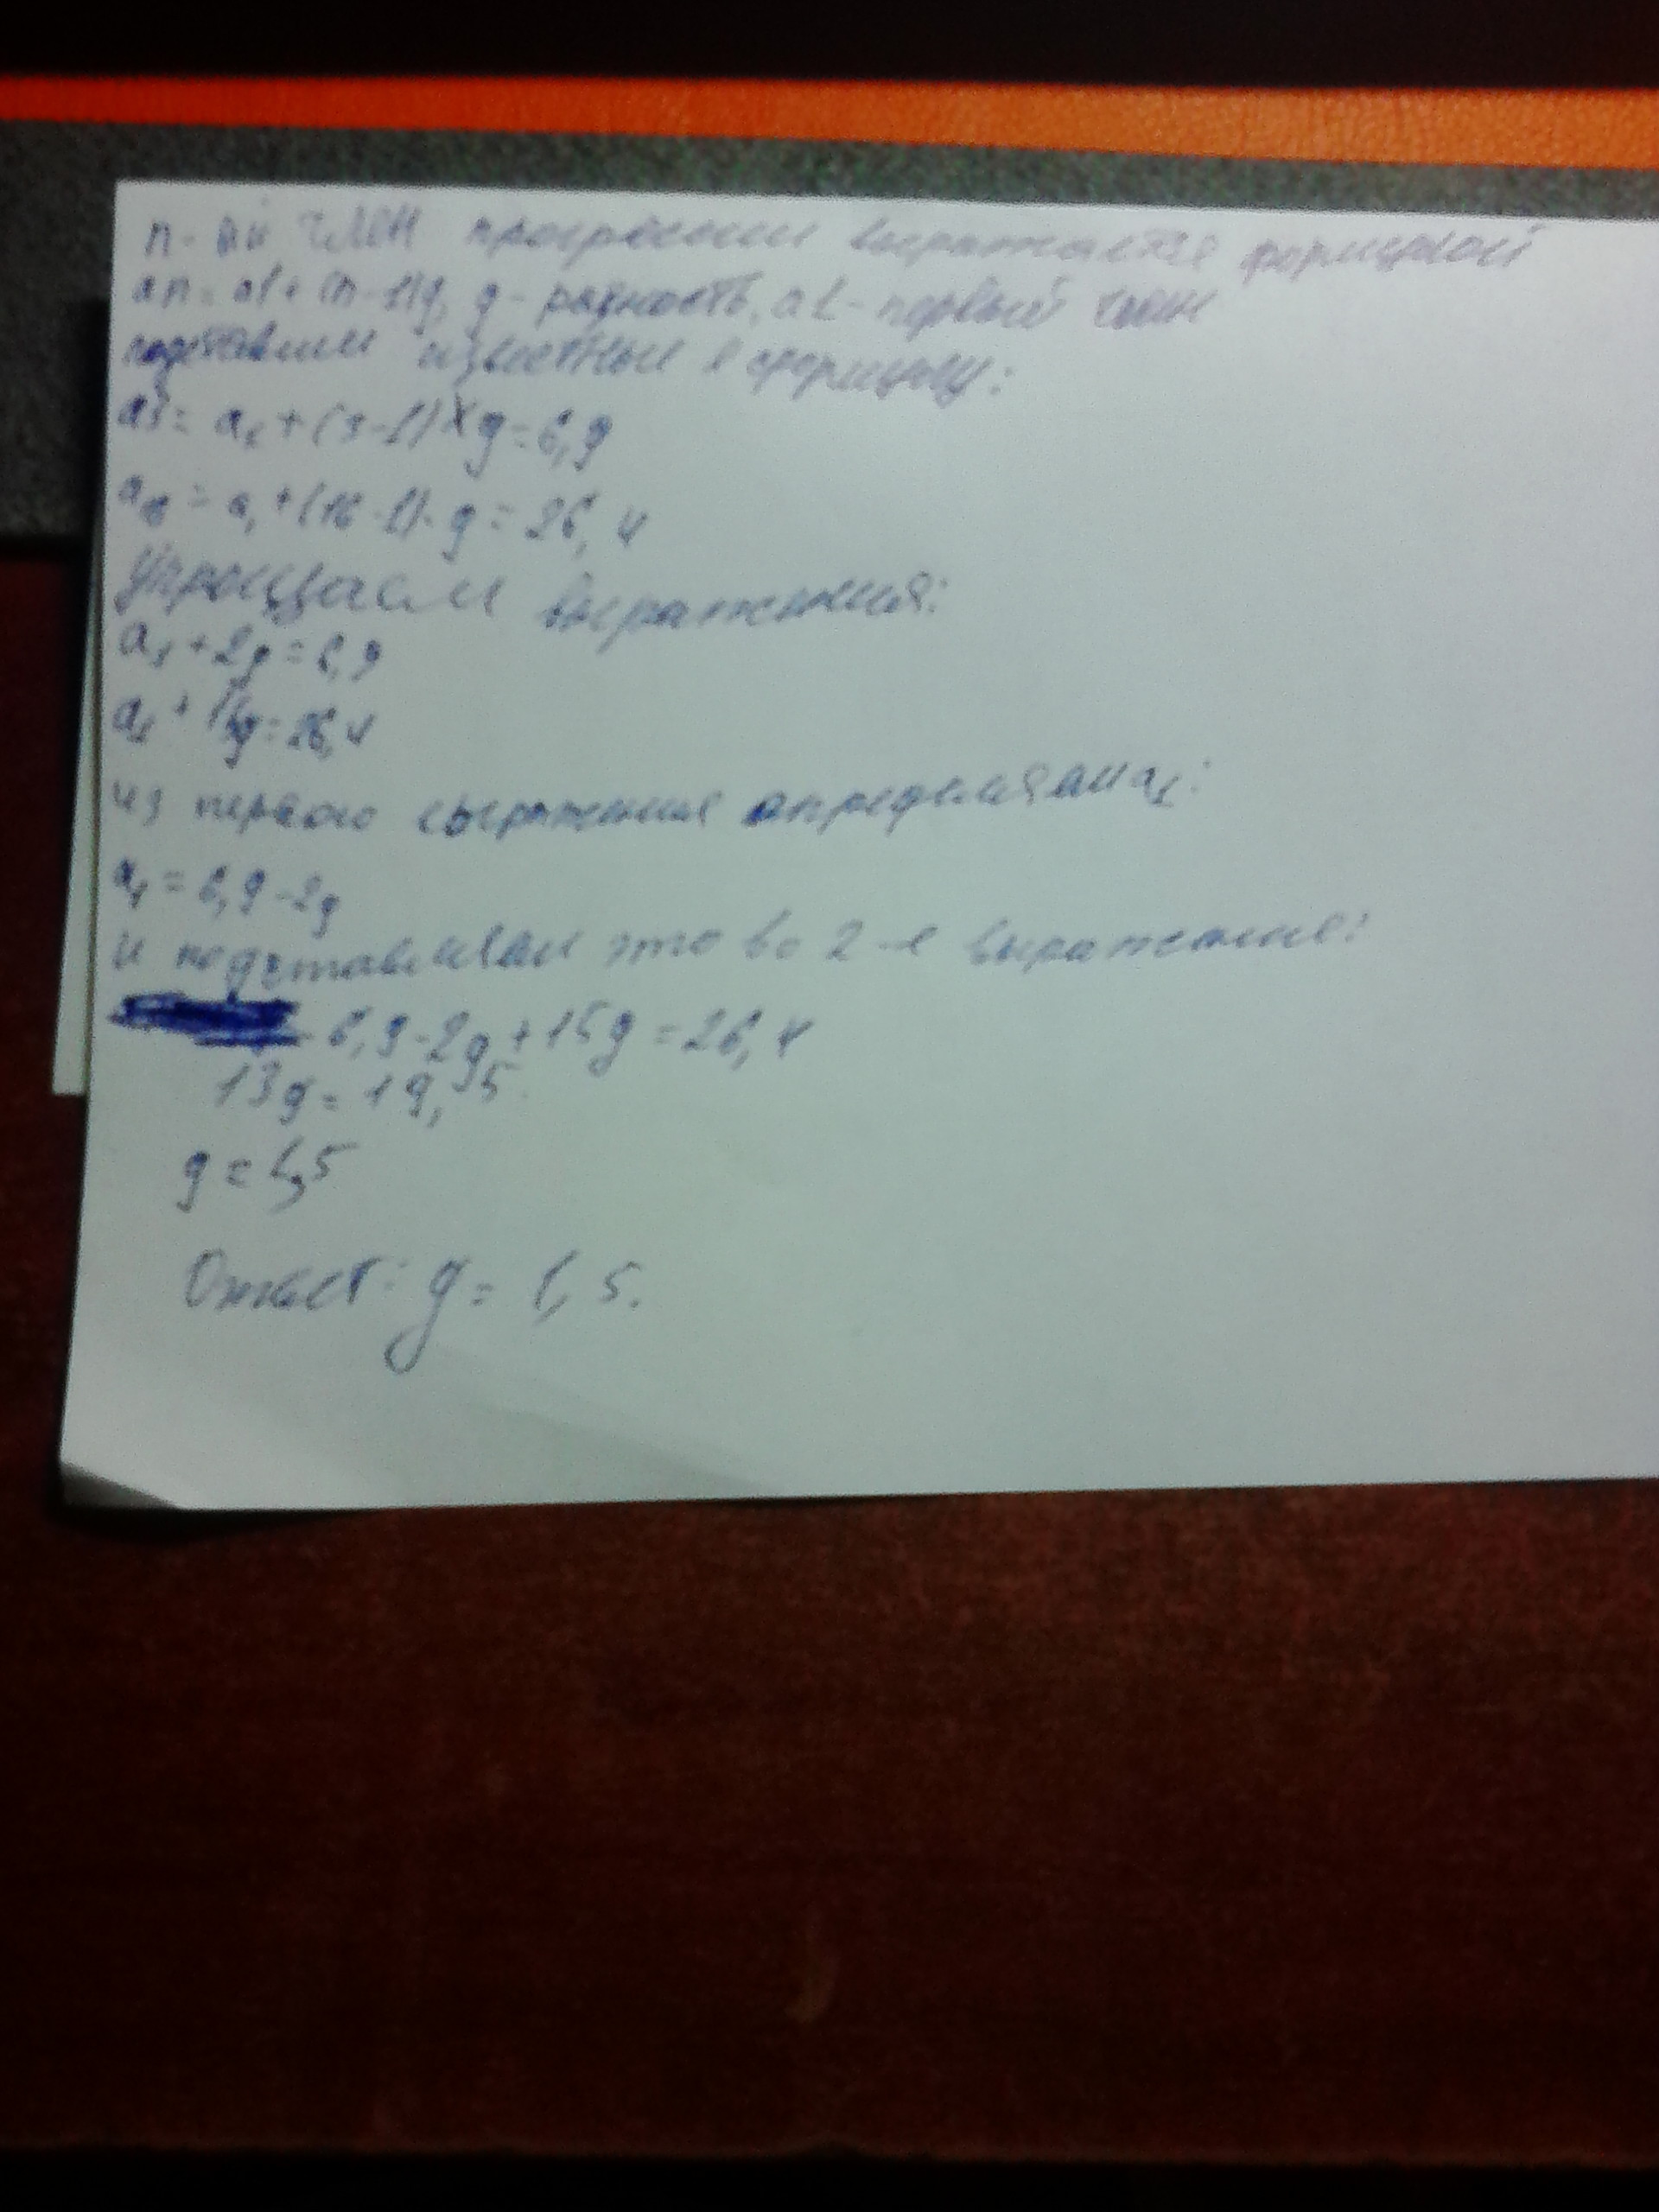 n-ый член прогрессии выражается формулой
an=a1+(n-1)g, g-разность, a1-первый член
подставим известные в формулу:
a3=a₁+(3-1)×g=6,9
a₁₆=a₁+(16-1)·g=26,4
Упрощаем выражения:
a₁+2g=6,9
a₁+15g=26,4
из первого выражения определяем a₁:
a₁=6,9-2g
и подставляем это во 2-е выражение:
6,9-2g+15g=26,4
13g=19,5
g=1,5
Ответ: g=1,5.